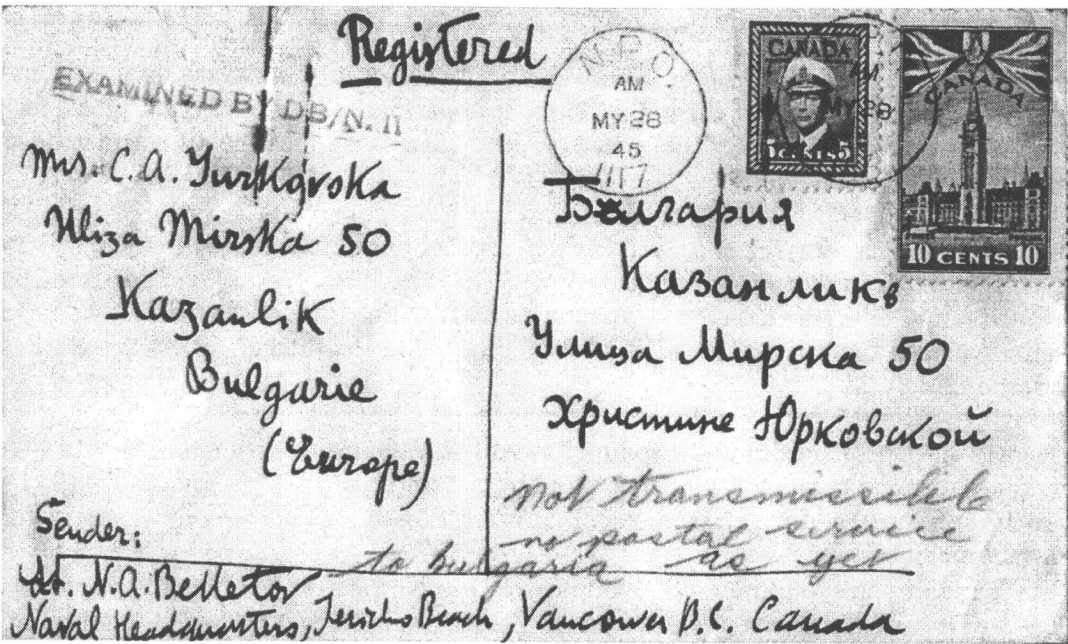 Registered
EXAMINED BY DB/N. 11
N.P.O.
AM
MY 28
45
1117
CANADA
5 CENTS 5
AM
MY 28
CANADA
10 CENTS 10
Mrs. C.A. Jurkovska
Uliza Mirska 50
Kazanlik
Bulgarie
(Europe)
Болгария
Казанликъ
Улиза Мирска 50
Христине Юрковской
not transmissible
no postal service
to bulgaria as yet
Sender:
Lt. N.A. Belletov
Naval Headquarters, Jericho Beach, Vancouver B.C. Canada